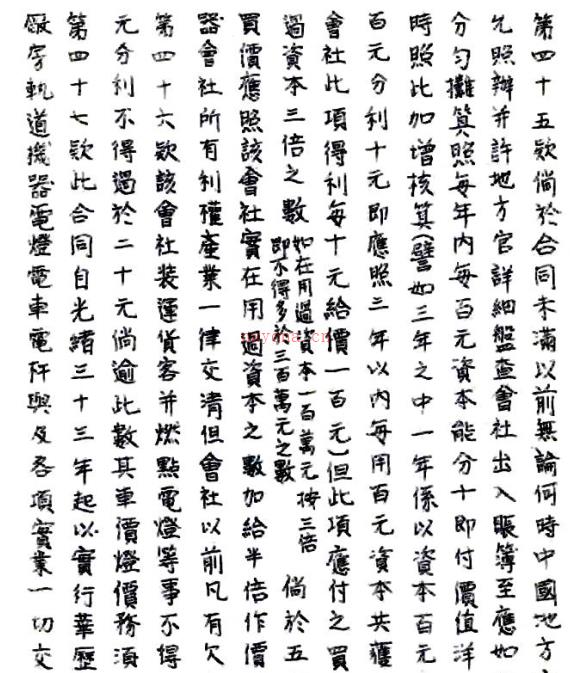 第四十五欵倘於合同未滿以前無論何時中國地方
允照辦并許地方官詳細盤查會社出入賬簿至應如
分勻攤筭照每年內每百元資本能分十即付價值洋
時照此加增核筭(譬如三年之中一年係以資本百元
百元分利十元即應照三年以內每用百元資本共獲
會社此項得利每十元給價一百元)但此項應付之買
過資本三倍之數如在用過資本一百萬元按三倍即不得多於三百萬元之數倘於五
買價應照該會社實在用過資本之數加給半倍作價
器會社所有利權產業一律交清但會社以前凡有欠
第四十六欵該會社装運貨客并燃點電燈等事不得
元分利不得過於二十元倘逾此數其車價燈價務須
第四十七欵此合同自光緒三十三年起以實行華歷
廠房軌道機器電燈電車電杆與及各項實業一切交